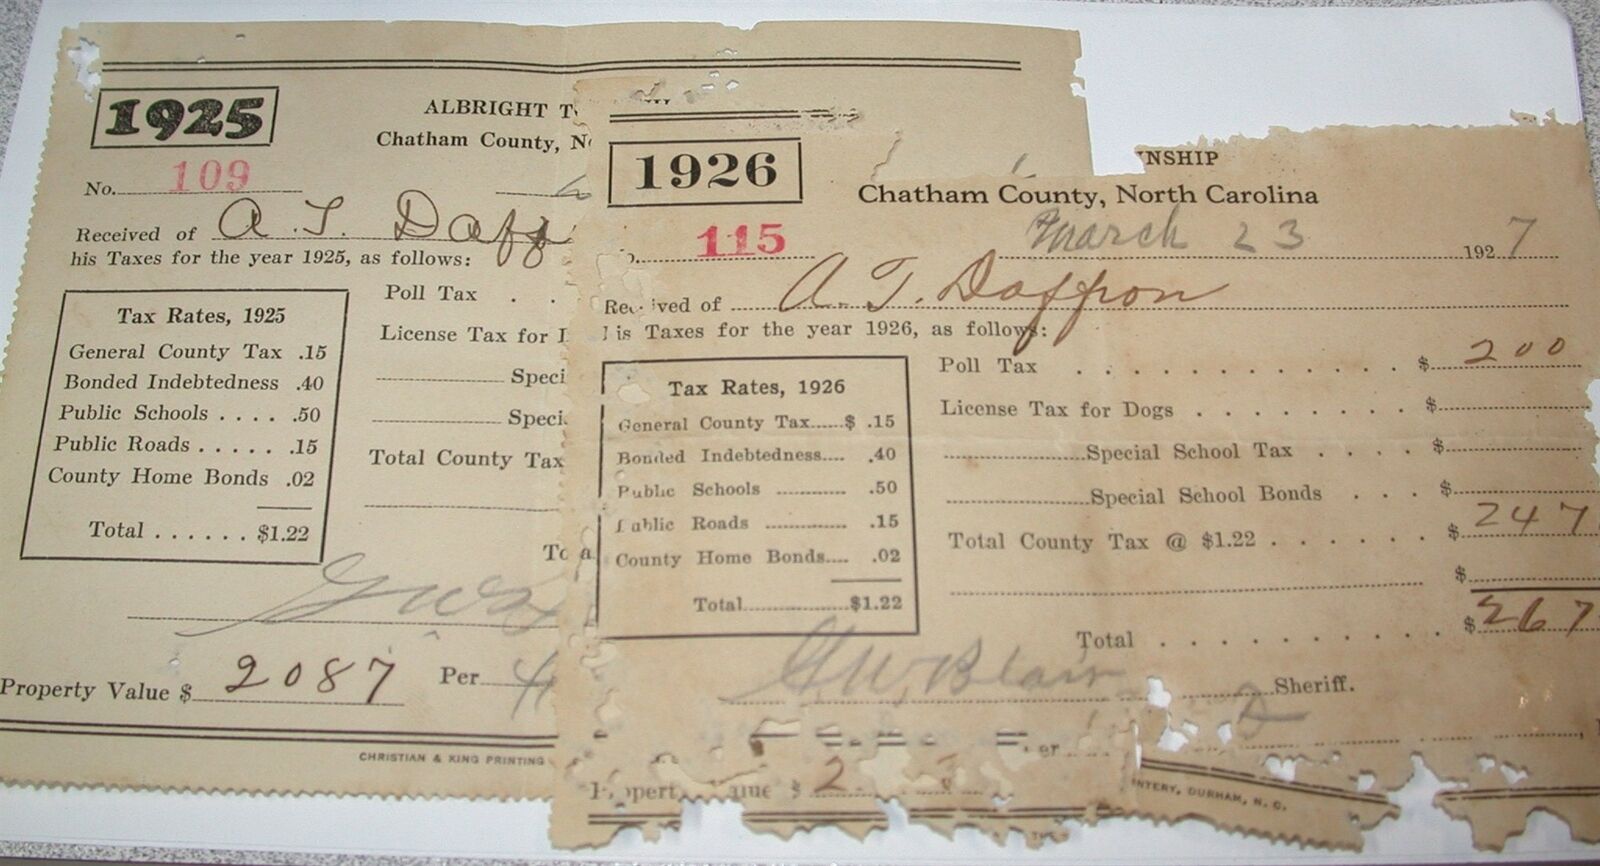 1925
ALBRIGHT
Chatham County,
No. 109
Received of A. T. Daff
his Taxes for the year 1925, as follows:
Tax Rates, 1925
General County Tax .15
Bonded Indebtedness .40
Public Schools . . . . .50
Public Roads . . . . . .15
County Home Bonds .02
Total . . . . . . $1.22
Poll Tax . .
License Tax for
Speci
Speci
Total County Tax
Property Value $ 2087 Per
CHRISTIAN & KING PRINTING
1926
NSHIP
Chatham County, North Carolina
115
March 23 1927
Received of A. T. Daffron
his Taxes for the year 1926, as follows:
Tax Rates, 1926
General County Tax......$ .15
Bonded Indebtedness.... .40
Public Schools ............ .50
Public Roads .............. .15
County Home Bonds.... .02
Total..................$1.22
Poll Tax . . . . . . . . . . . . $ 200
License Tax for Dogs . . . . . . . . $
Special School Tax . . . . $
Special School Bonds . . . $
Total County Tax @ $1.22 . . . . . . $ 247
$
Total . . . . . . . . . . $ 267
G. W. Blair Sheriff.
er
Property Value $ 2
NTERY, DURHAM, N. C.